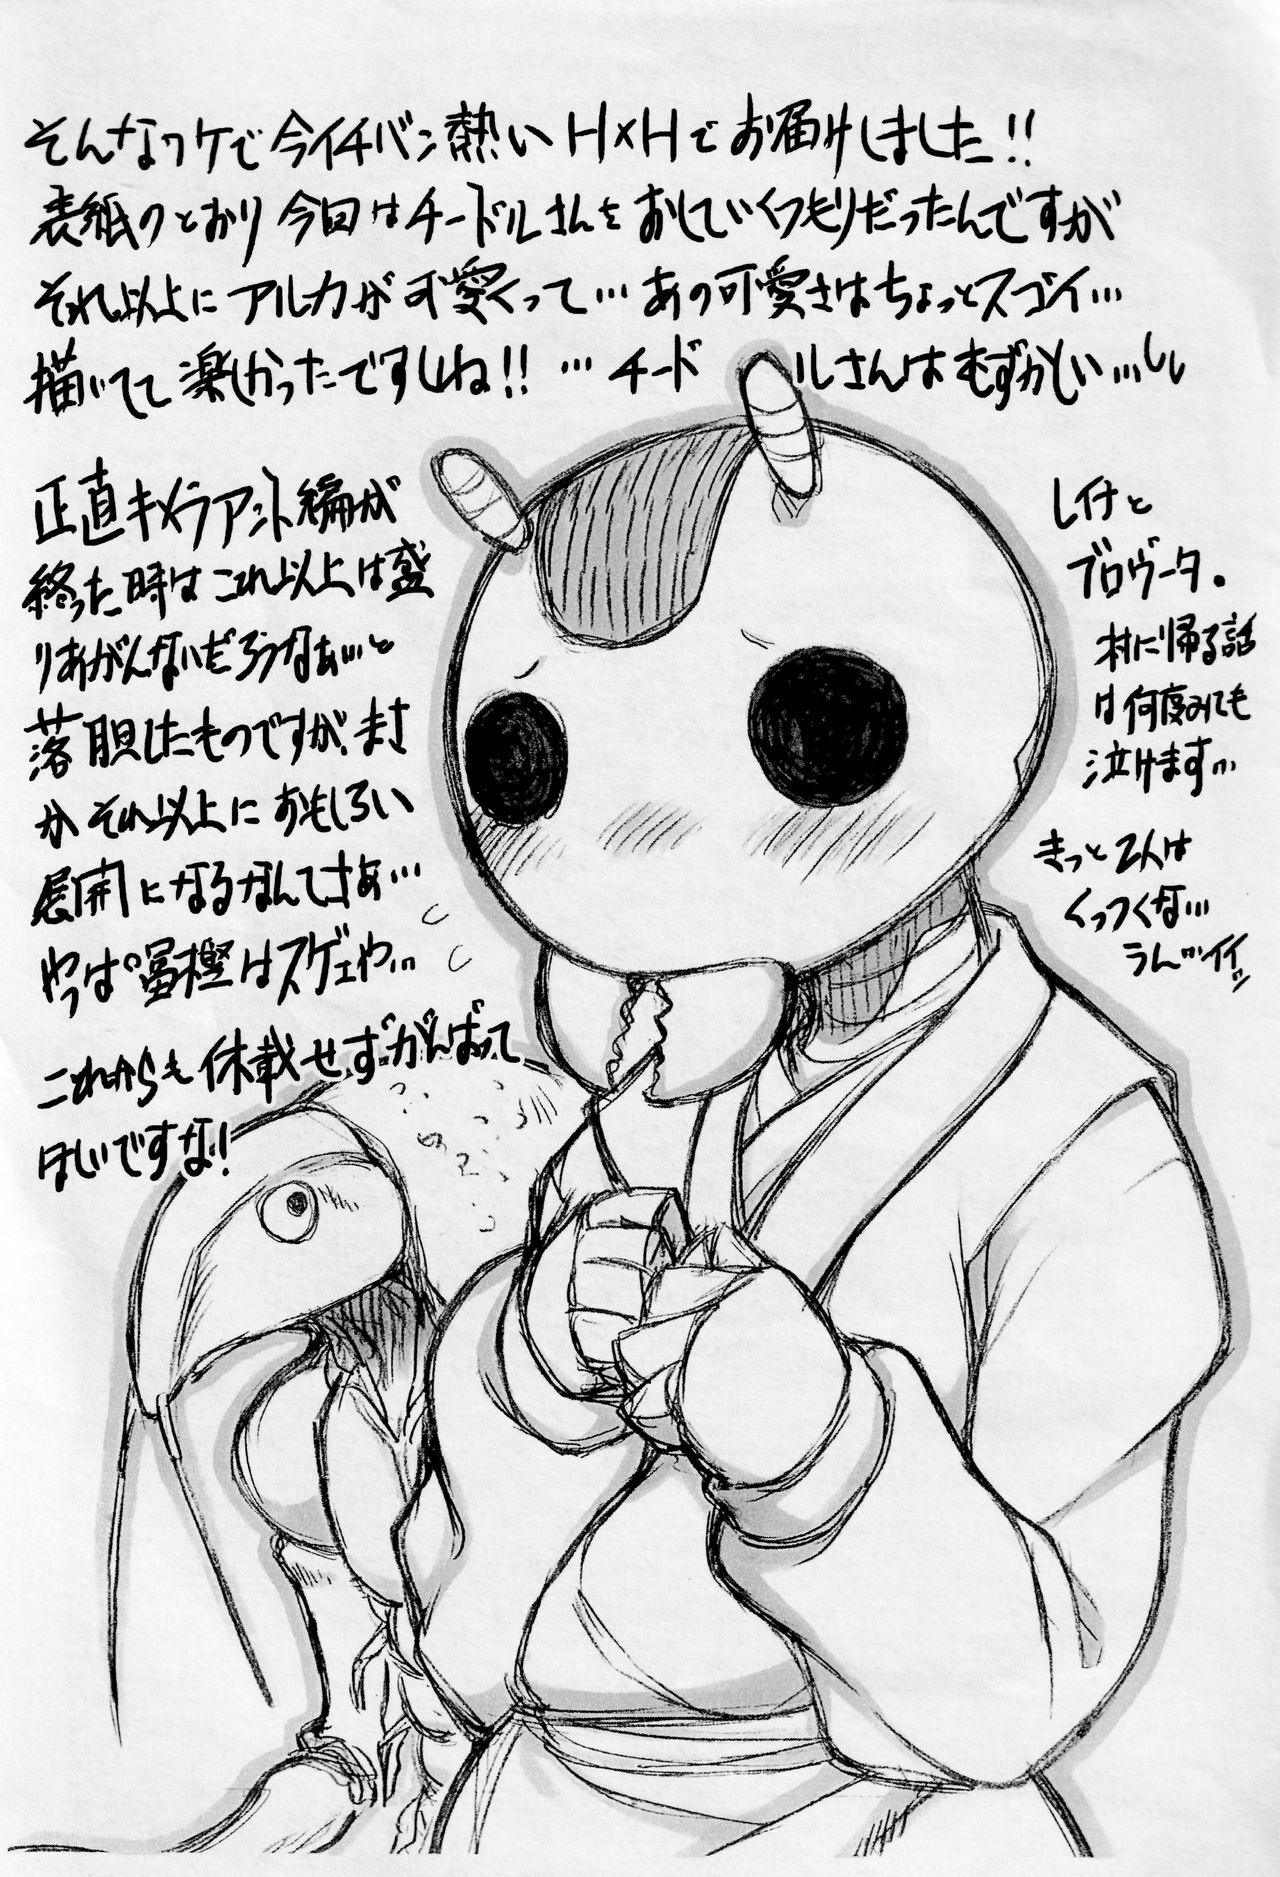 そんなワケで今イチバン熱いH×Hでお届けしました!!
表紙のとおり今回はチードルさんをおしていくつもりだったんですが
それ以上にアルカが可愛くって…あの可愛さはちょっとスゴイ…
描いてて楽しかったですしね!!…チードルさんはむずかしい…
正直キメラアント編が
終った時はこれ以上は盛
りあがんないだろうなぁ…と
落胆したものですが、まさ
かそれ以上におもしろい
展開になるなんてさぁ…
やっぱ冨樫はスゲェや…
これからも休載せずがんばって
ほしいですな!
レイナと
ブロヴーダ。
村に帰る話
は何度みても
泣けます…
きっと2人は
くっつくな…
うん…イイッ